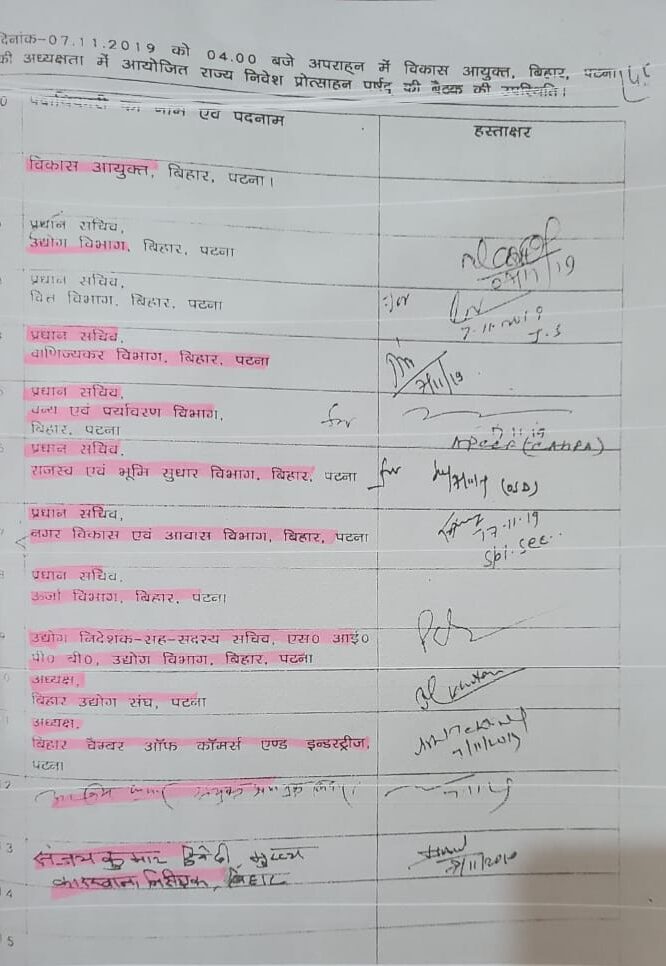 दिनांक-07.11.2019 को 04.00 बजे अपराहन में विकास आयुक्त, बिहार, पटना
की अध्यक्षता में आयोजित राज्य निवेश प्रोत्साहन पर्षद की बैठक की उपस्थिति।
0 पदाधिकारी का नाम एवं पदनाम
हस्ताक्षर
विकास आयुक्त, बिहार, पटना।
प्रधान सचिव,
उद्योग विभाग, बिहार, पटना
07/11/19
प्रधान सचिव,
वित्त विभाग, बिहार, पटना
for
7.11.2019
J.S
प्रधान सचिव,
वाणिज्यकर विभाग, बिहार, पटना
7/11/19
प्रधान सचिव,
वन्य एवं पर्यावरण विभाग,
बिहार, पटना
for
7.11.19
APCCF (CAMPA)
प्रधान सचिव,
राजस्व एवं भूमि सुधार विभाग, बिहार, पटना
for
(OSD)
प्रधान सचिव,
नगर विकास एवं आवास विभाग, बिहार, पटना
17.11.19
Spl. Sec.
प्रधान सचिव,
ऊर्जा विभाग, बिहार, पटना
उद्योग निदेशक-सह-सदस्य सचिव, एस० आई०
पी० बी०, उद्योग विभाग, बिहार, पटना
अध्यक्ष,
बिहार उद्योग संघ, पटना
अध्यक्ष,
बिहार चैम्बर ऑफ कॉमर्स एण्ड इन्डस्ट्रीज,
पटना
7/11/2019
2
3 संजय कुमार द्विवेदी, मुख्य
कारखाना निरीक्षक, बिहार
7/11/2019
4
5